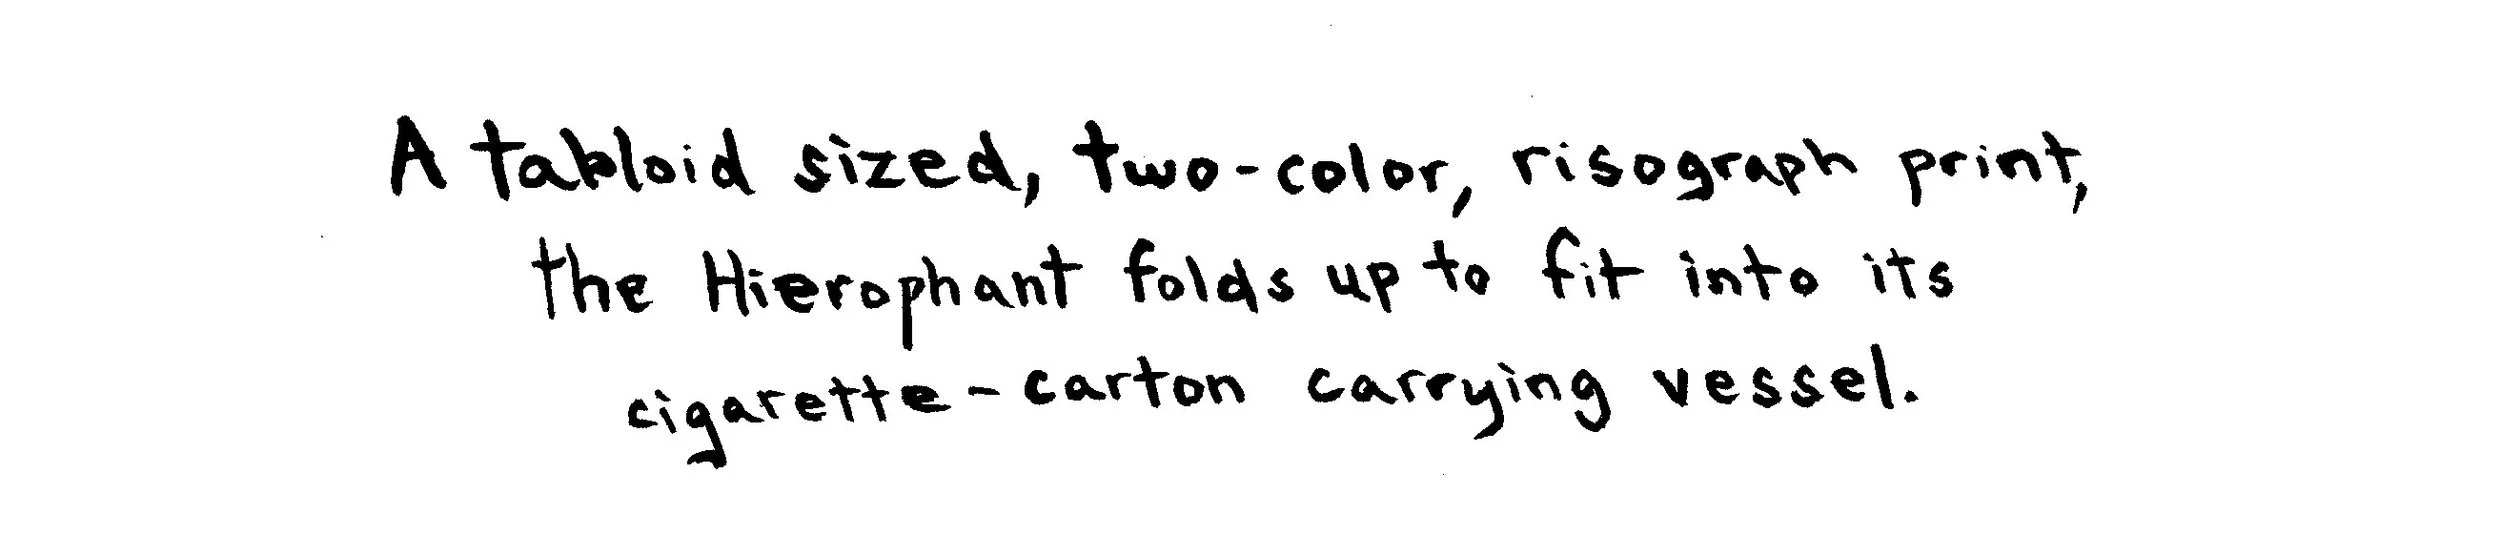 A tabloid sized, two-color, risograph print,
the Hierophant folds up to fit into its
cigarette-carton carrying vessel.